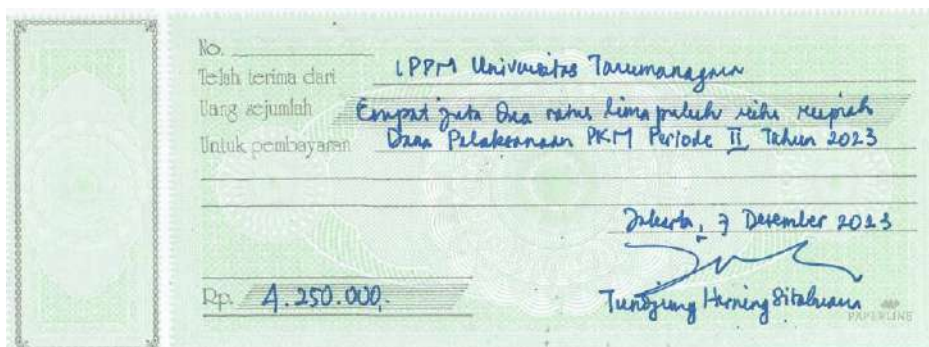 No.
Telah terima dari LPPM Universitas Tarumanagara
Uang sejumlah Empat juta Dua ratus lima puluh ribu rupiah
Untuk pembayaran Dana Pelaksanaan PKM Periode II Tahun 2023
Jakarta, 7 Desember 2023
Rp. 4.250.000,
Tundjung Herning Sitabuana
PAPERLINE